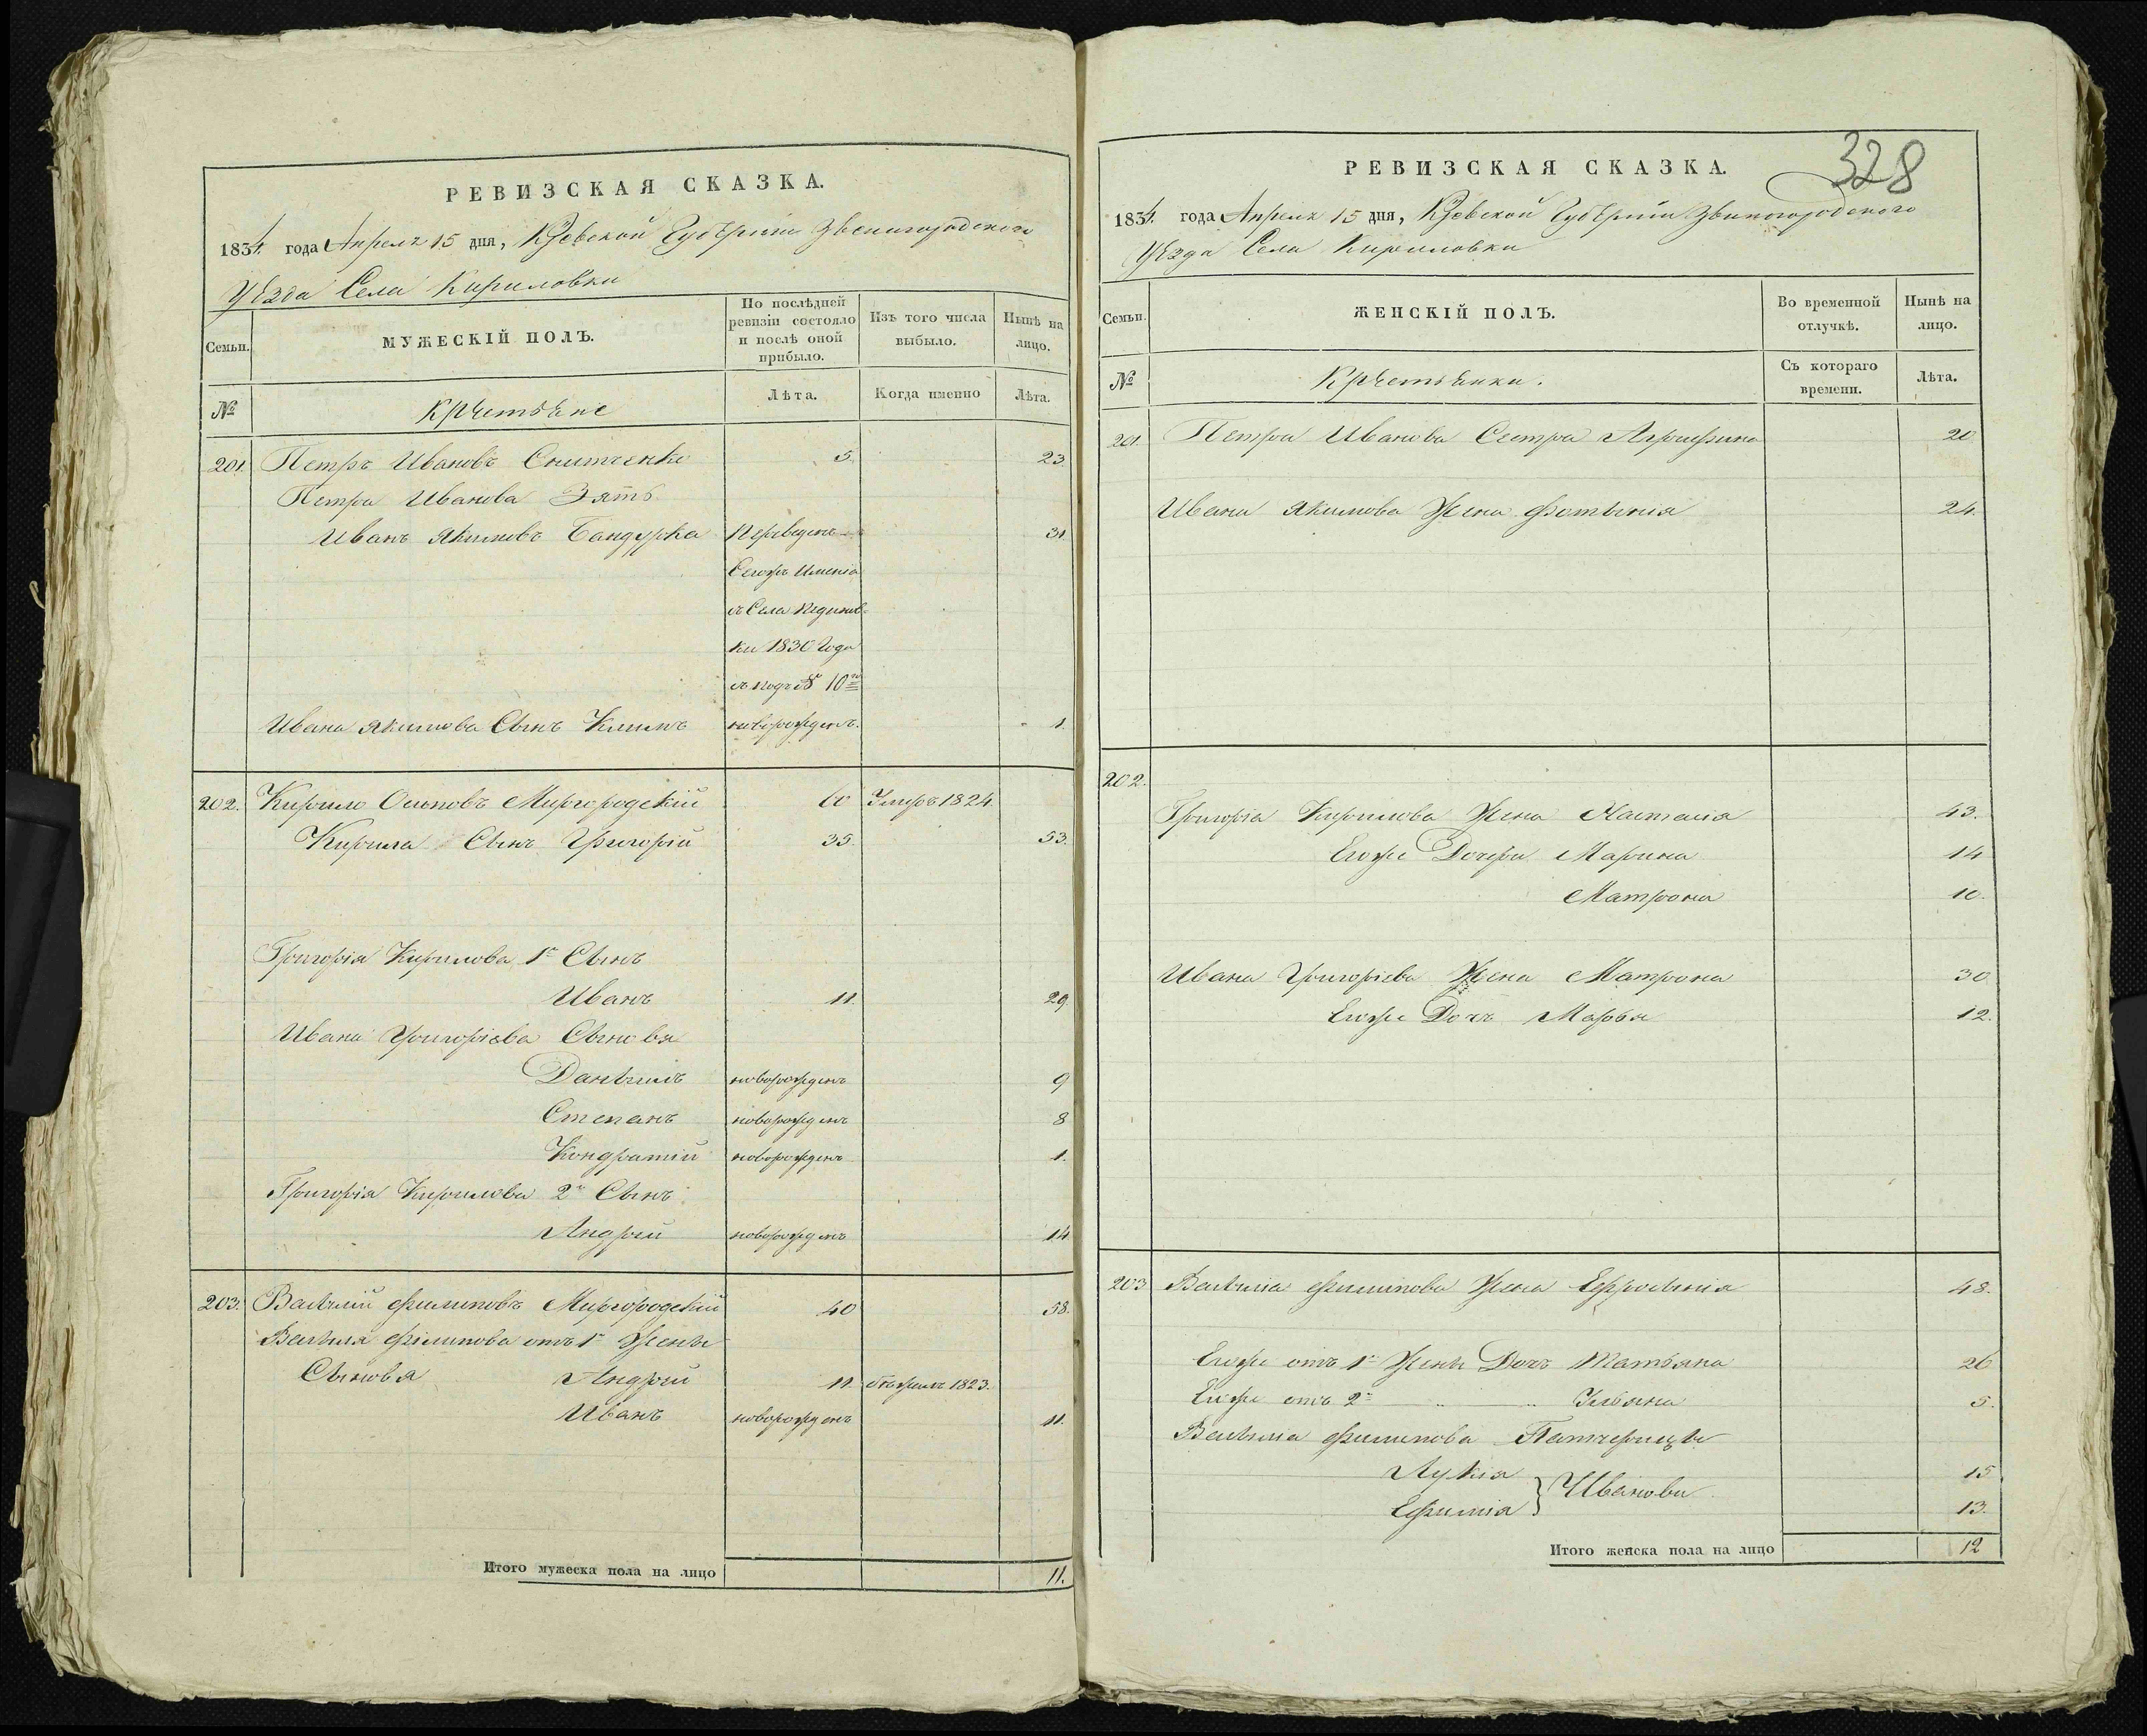 РЕВИЗСКАЯ СКАЗКА.
1834. года Апреля 15 дня, Кіевской Губерніи Звенигородского
Уѣзда Села Кириловки
Семьи.
МУЖЕСКІЙ ПОЛЪ.
По послѣдней ревизіи состояло и послѣ оной прибыло.
Изъ того числа выбыло.
Нынѣ на лицо.
№
Крестьяне
Лѣта.
Когда именно
Лѣта.
201. Петръ Ивановъ Снитченко 5. 23.
Петра Иванова Зять
Иванъ Якимовъ Бандурка Переведенъ 31
Сегожъ Имѣнія
съ Села Пединов-
ки 1830 Года
съ подъ № 10го
Ивана Якимова Сынъ Климъ новорожденъ. 1.
202. Кирило Осиповъ Миргородскій 60 Умеръ 1824.
Кирила Сынъ Григорій 35. 53.
Григорія Кирилова 1й Сынъ
Иванъ 11. 29
Ивана Григоріева Сыновья
Даніилъ новорожденъ 9
Степанъ новорожденъ 8
Кондратій новорожденъ 1.
Григорія Кирилова 2й Сынъ
Андрей новорожденъ 14
203. Василій Филиповъ Миргородскій 40 58.
Василія Филипова отъ 1й Жены
Сыновья Андрей 11. бѣжалъ 1823.
Иванъ новорожденъ 11.
Итого мужеска пола на лицо 11.
328
РЕВИЗСКАЯ СКАЗКА.
1834. года Апреля 15 дня, Кіевской Губерніи Звенигородского
Уѣзда Села Кириловки
Семьи.
ЖЕНСКІЙ ПОЛЪ.
Во временной отлучкѣ.
Нынѣ на лицо.
№
Крестьянки.
Съ котораго времени.
Лѣта.
201. Петра Иванова Сестра Агрифина 20
Ивана Якимова Жена Фотынія 24.
202.
Григорія Кирилова Жена Настасія 43.
Егоже Дочери Марина 14
Матрона 10.
Ивана Григоріева Жена Матрона 30
Егоже Дочь Марья 12.
203 Василія Филипова Жена Ефросинія 48.
Егоже отъ 1й Жены Дочь Татьяна 26
Егоже отъ 2й " " Ульяна 5.
Василія Филипова Патчерицы
Лукія } Ивановы 15
Ефимія 13.
Итого женска пола на лицо 12